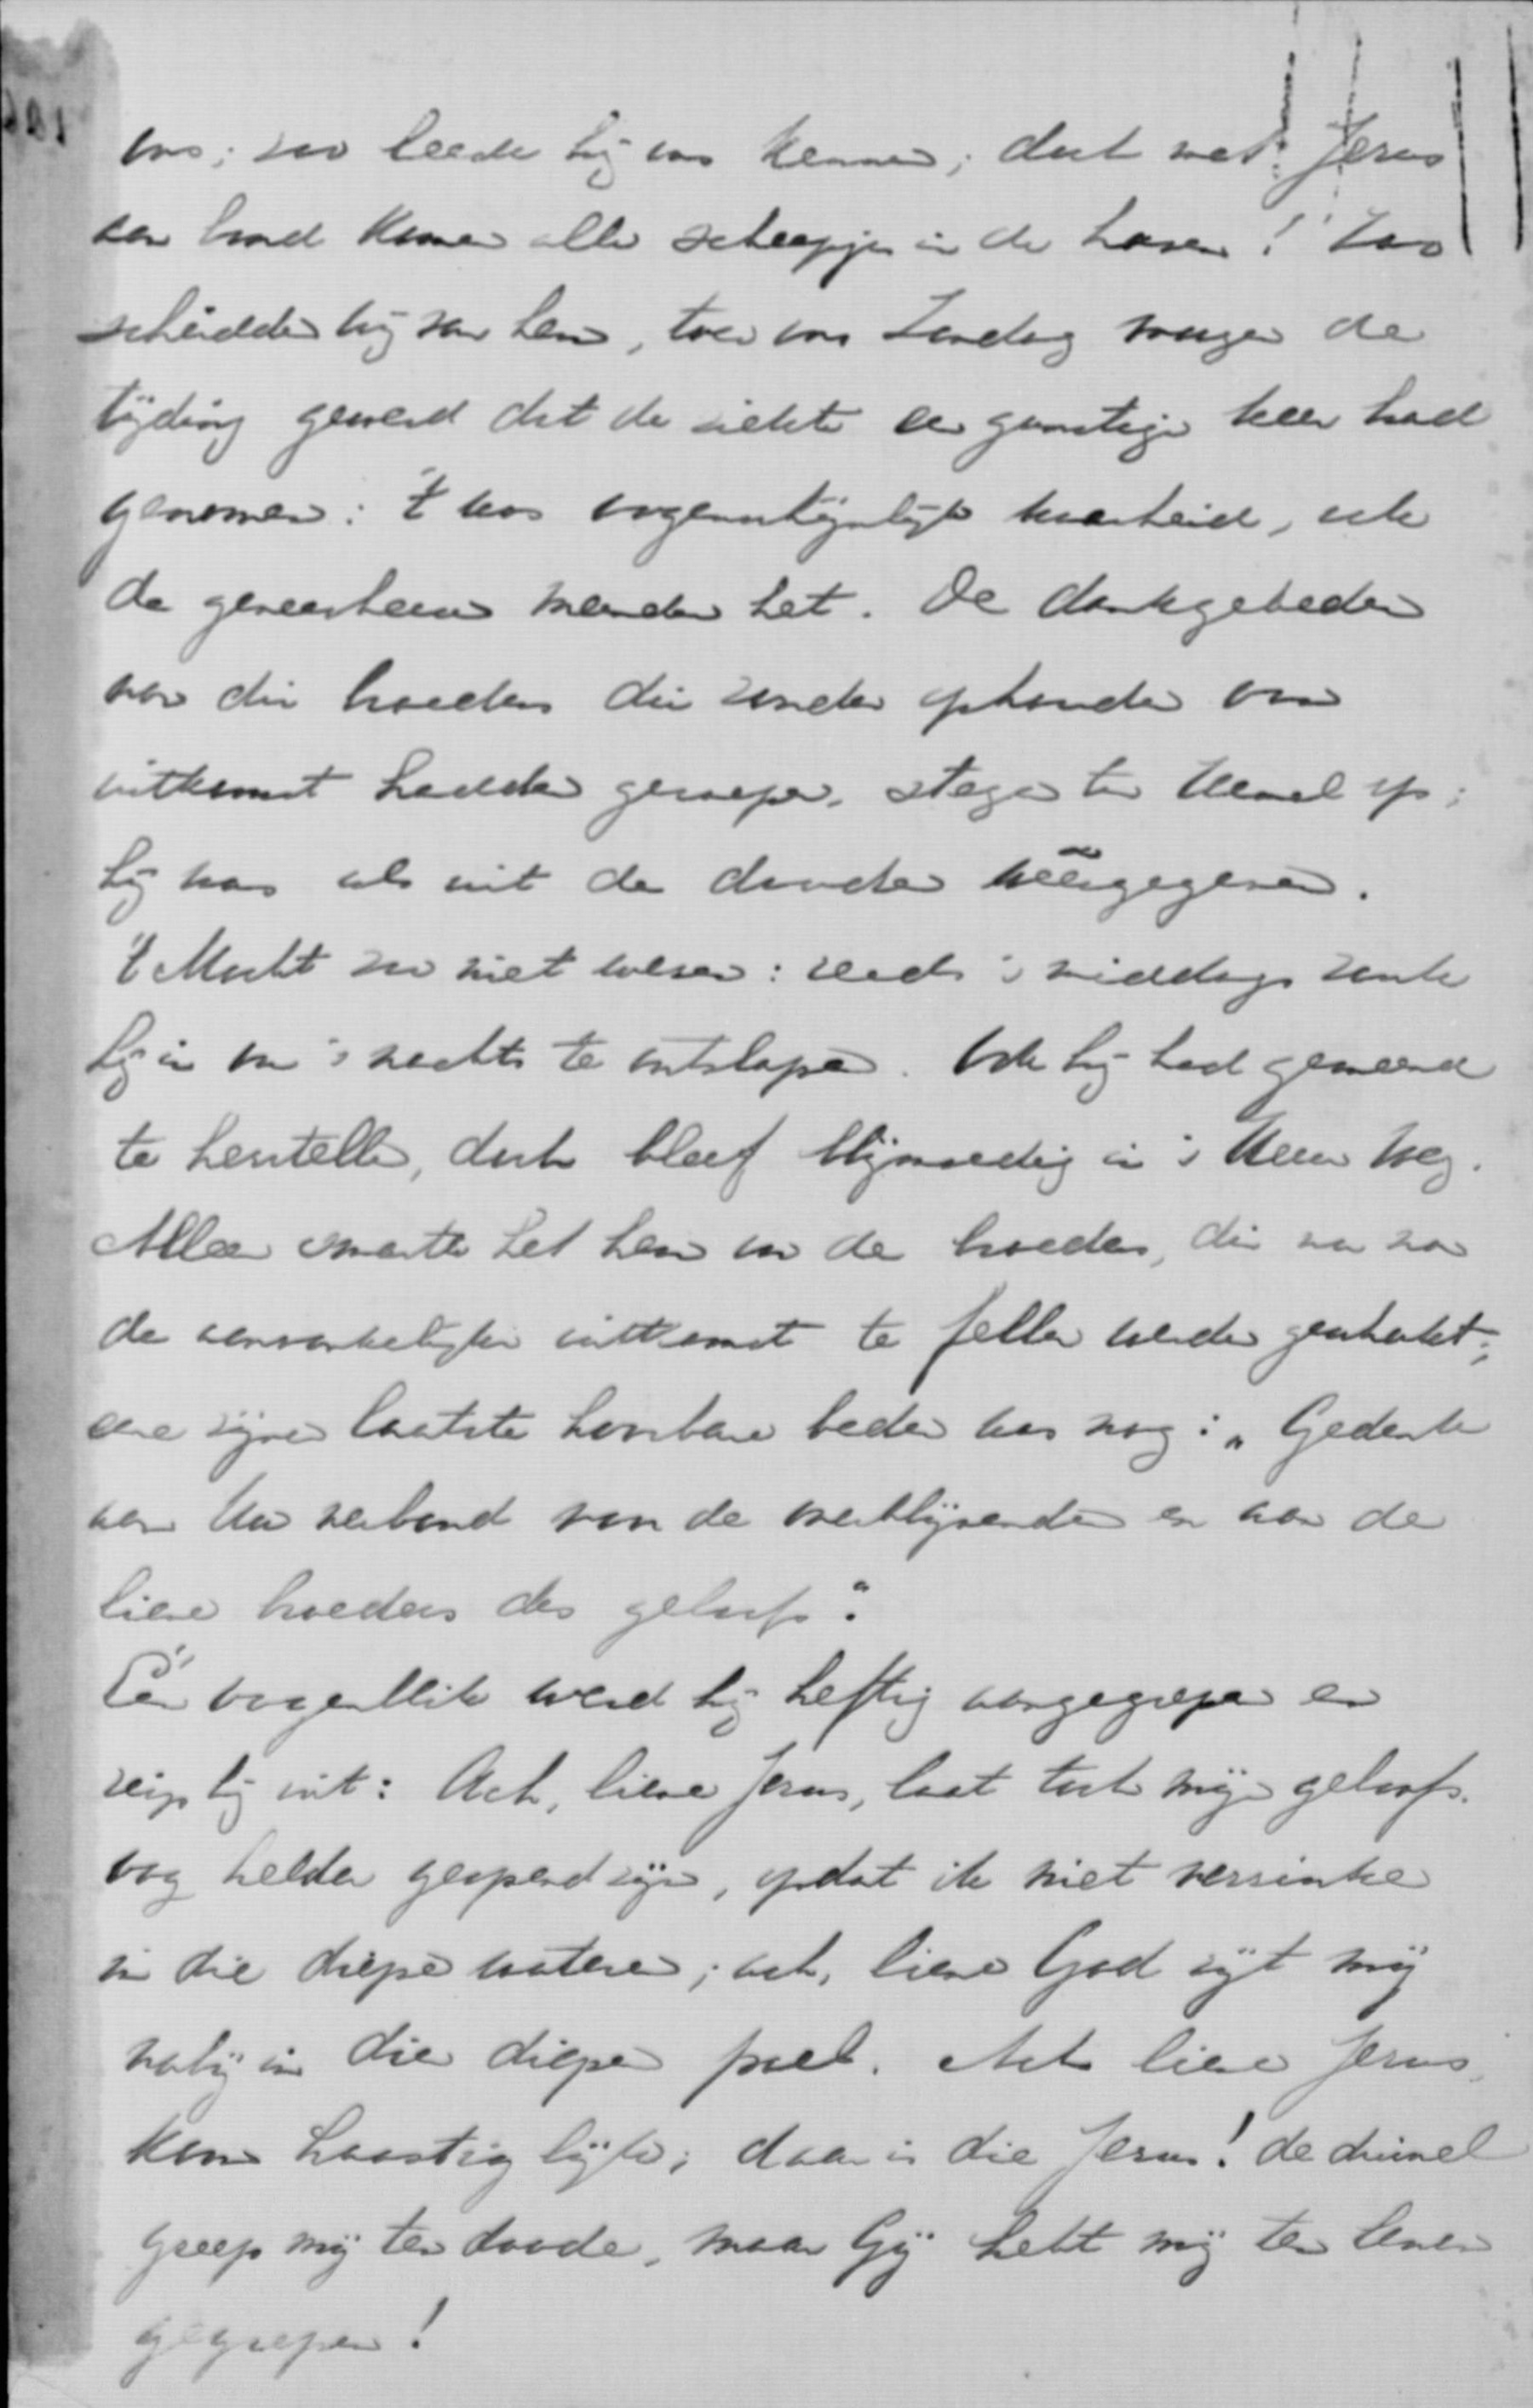 ons; zoo leerde hij ons kennen; doch met Jezus
aan boord komen alle scheepjes in de haven! Zoo
scheidden wij van hem, toen ons Zondag morgen de
tijding gewerd dat de ziekte een gunstige keer had
genomen: 't was oogenschijnlijk waarheid, ook
de geneesheeren meenden het. De dankgebeden
van die broeders die zonder ophouden om
uitkomst hadden geroepen, stegen ten Hemel op;
hij was als uit de dooden weêrgegeven.
't Mocht zoo niet wezen: reeds 's middags zonk
hij in om 's nachts te ontslapen. Ook hij had gemeend
te herstellen, doch bleef blijmoedig in 's Heeren weg.
Alleen smartte het hem om de broeders, die nu van
de aanvankelijke uitkomst te feller werden geschokt;
eene zijner laatste hoorbare beden was nog: „Gedenk
aan Uw verbond van de overblijvenden en aan de
lieve broeders des geloofs."
Eén oogenblik werd hij heftig aangegrepen en
riep hij uit: Ach, lieve Jezus, laat toch mijn geloofs-
oog helder geopend zijn, opdat ik niet verzinke
in die diepe wateren; ach, lieve God zijt mij
nabij in die diepe poel. Ach lieve Jezus,
kom haastiglijk; daar is die Jezus! de duivel
greep mij ten doode, maar Gij hebt mij ten leven
gegrepen!